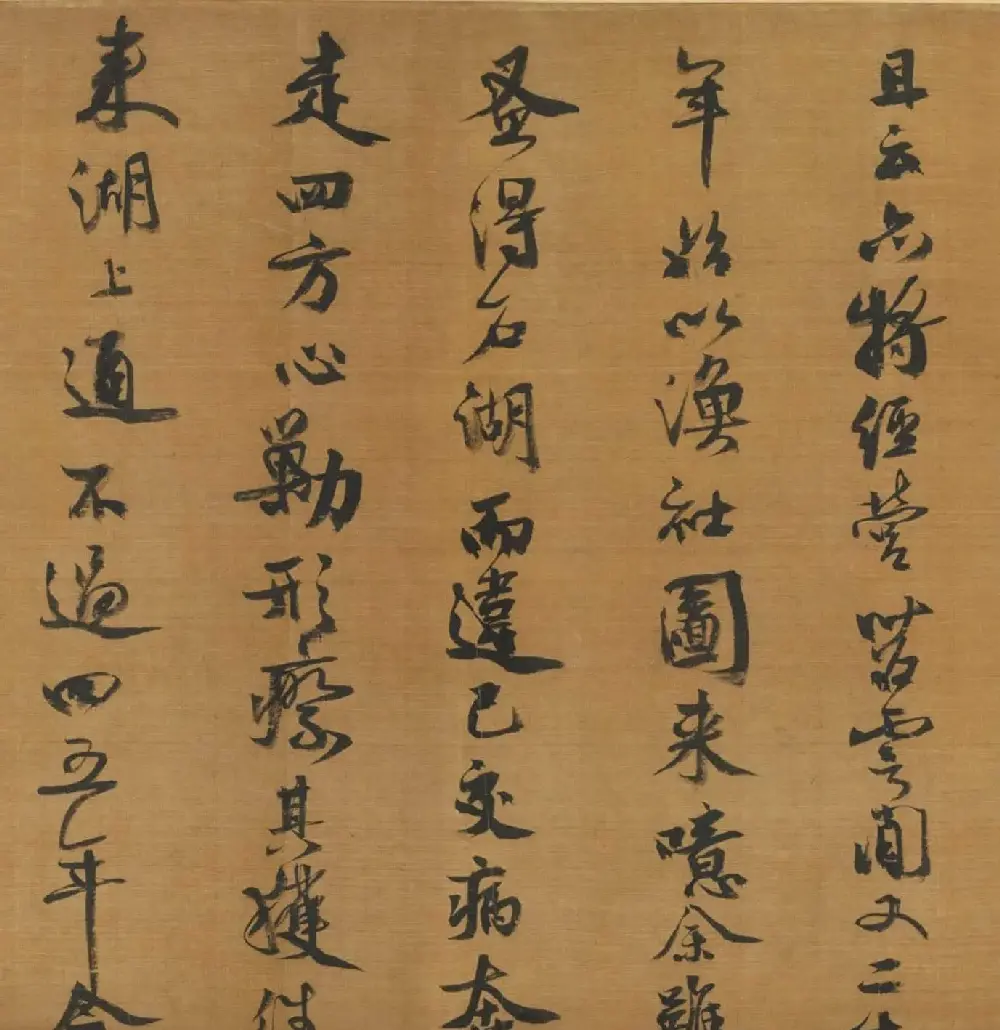 且云亦將經營苕霅間又二
年始以漁社圖来噫余雖
蚤得石湖而違己交病奔
走四方心勦形瘵其獲
来湖上通不過四五年今